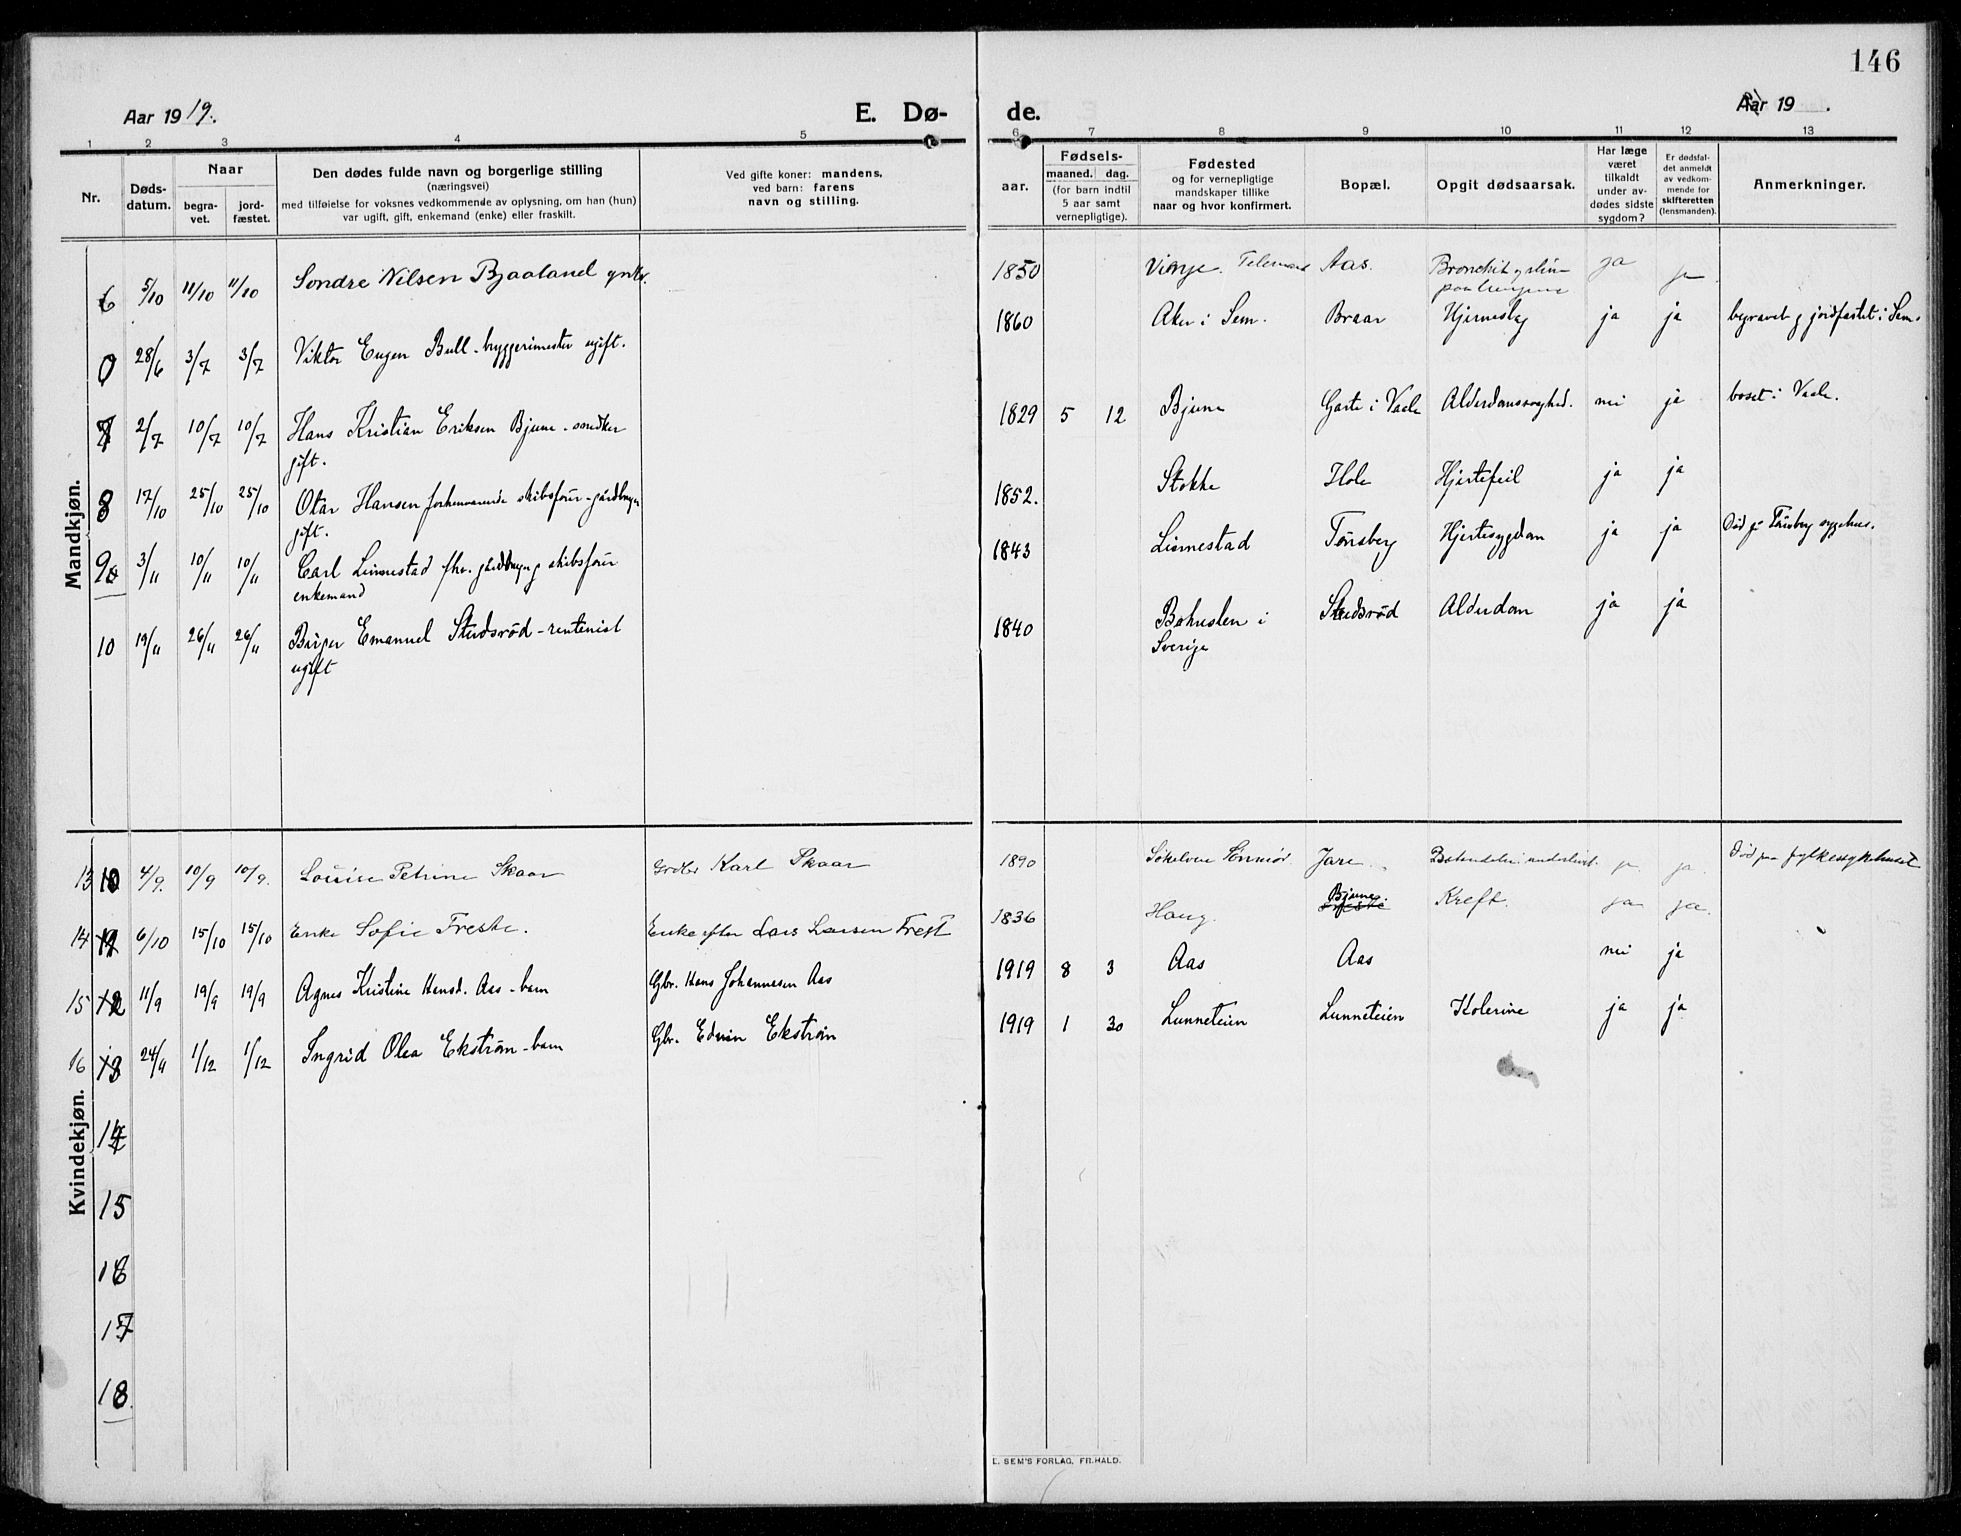 146
Aar 1919.
E. Dø-
de.
Aar 19 .
1 2 3 4 5 6 7 8 9 10 11 12 13
Nr.
Døds-
datum.
Naar
begra-
vet.
jord-
fæstet.
Den dødes fulde navn og borgerlige stilling
(næringsvei)
med tilføielse for voksnes vedkommende av oplysning, om han (hun)
var ugift, gift, enkemand (enke) eller fraskilt.
Ved gifte koner: mandens,
ved barn: farens
navn og stilling.
aar.
Fødsels-
maaned. dag.
(for barn indtil
5 aar samt
vernepligtige).
Fødested
og for vernepligtige
mandskaper tillike
naar og hvor konfirmert.
Bopæl.
Opgit dødsaarsak.
Har læge
været
tilkaldt
under av-
dødes sidste
sygdom?
Er dødsfal-
det anmeldt
av vedkom-
mende for
skifteretten
(lensmanden).
Anmerkninger.
Mandkjøn.
6 5/10 11/10 11/10 Sondre Nilsen Bjaaland 1850 Vinje. Telemark Aas. Bronchit og slim ja ja
paa lungene
0 28/6 3/7 3/7 Viktor Eugen Bull - bryggerimester ugift. 1860 Aker i Sem. Braar Hjerneslag ja ja begravet og jordfæstet i Sem.
7 2/7 10/7 10/7 Hans Kristian Eriksen Bjune - snedker 1829 5 12 Bjune Gaste i Vaale Alderdomssvaghed. nei ja boset i Vaale.
gift.
8 17/10 25/10 25/10 Otar Hansen forhenværende skibsfører - gårdbruger 1852. Stokke Hole Hjertefeil ja ja
gift.
9 3/11 10/11 10/11 Carl Linnestad fhv. gårdbruger og skibsfører 1843 Linnestad Tønsberg Hjertesygdom ja ja Död på Tönsberg sygehus.
enkemand
10 19/11 26/11 26/11 Birger Emanuel Studsröd - rentenist 1840 Bohuslen i Studsröd Alderdom ja ja
ugift Sverige
Kvindekjøn.
13 10 4/9. 10/9 10/9. Louise Petrine Skaar Grdbr Karl Skaar 1890 Søkelven Sönmör. Jare. Betændelse i underlivet. ja ja. Död paa fylkessykehuset
14 11 6/10 15/10 15/10 Enke Sofie Freste. Enke efter Lars Larsen Frest 1836 Haug. Bjune Kreft. ja ja.
15 12 11/9 19/9 19/9 Agnes Kristine Hansd. Aas - barn Gbr. Hans Johannesen Aas 1919 8 3 Aas Aas nei ja
16 13 24/11 1/12 1/12 Ingrid Olea Ekström - barn Gbr. Edvin Ekström 1919 1 30 Lunneteien Lunneteien Kolerine ja ja
14
15
16
17
18
E. SEM'S FORLAG, FR.HALD.